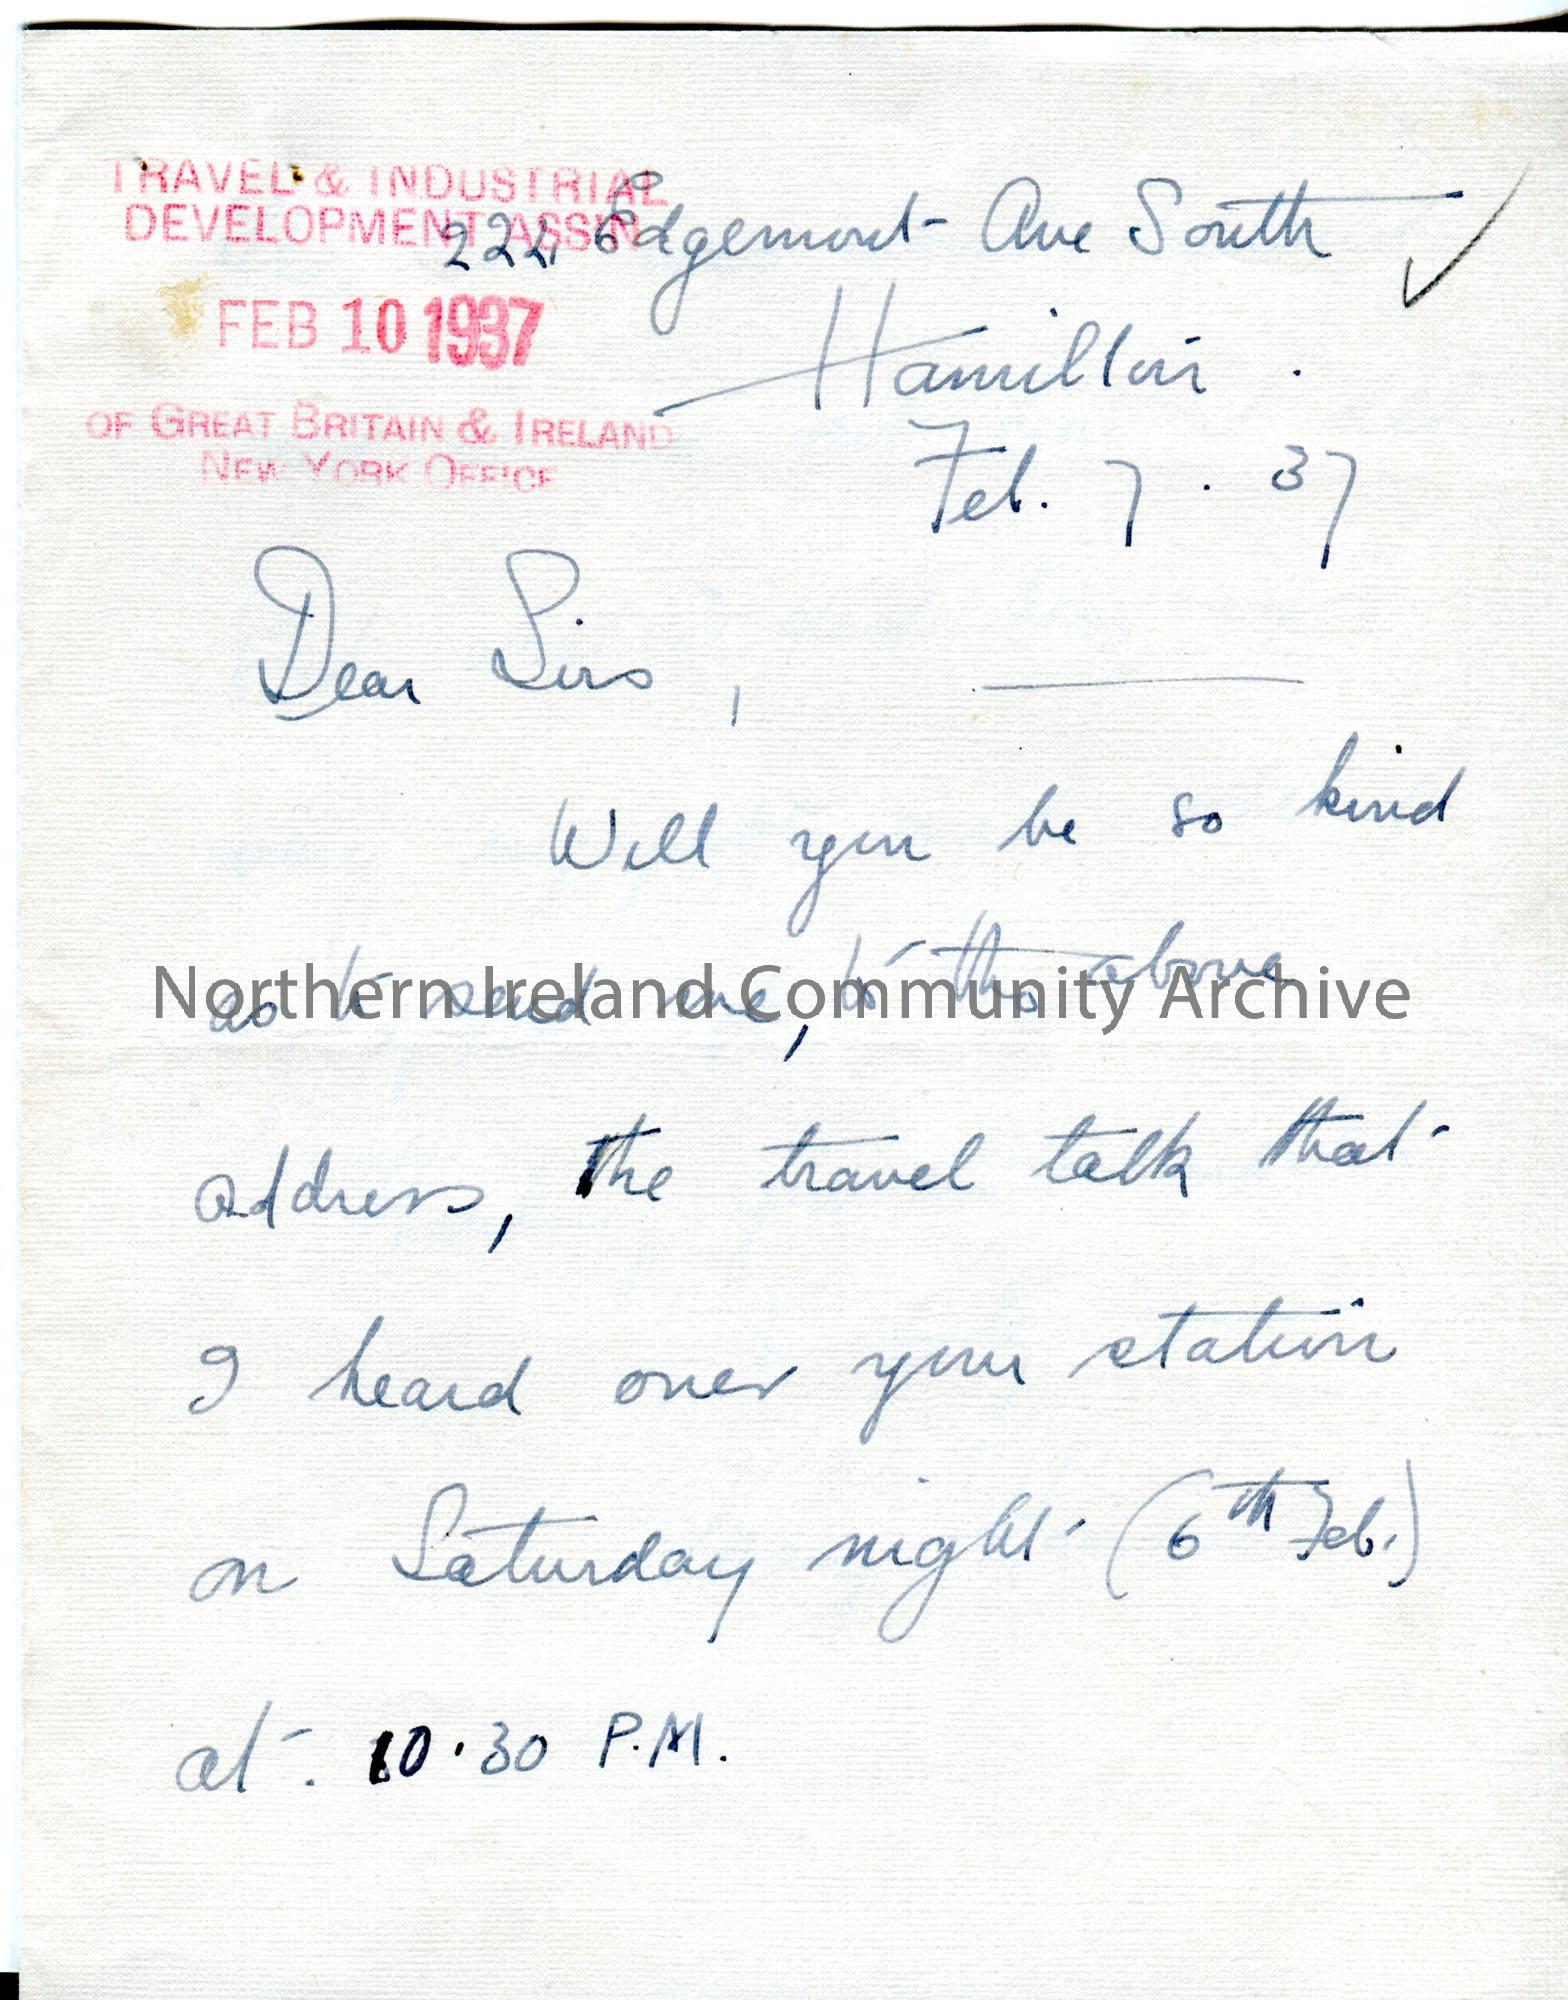 TRAVEL & INDUSTRIAL
DEVELOPMENT ASS'N
FEB 10 1937
OF GREAT BRITAIN & IRELAND
NEW YORK OFFICE
224 Edgemont Ave South
Hamilton.
Feb. 7. 37
Dear Sirs,
Will you be so kind
as to send me, to the above
Northern Ireland Community Archive
address, the travel talk that
I heard over your station
on Saturday night (6th Feb.)
at. 10.30 P.M.